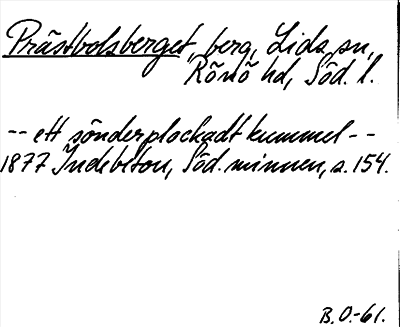 Prästbolsberget, berg, Lida sn,
Rönö hd, Söd. l.
-- ett sönderplockadt kummel --
1877 Indebetou, Söd. minnen, s. 154.
B. O.-61.